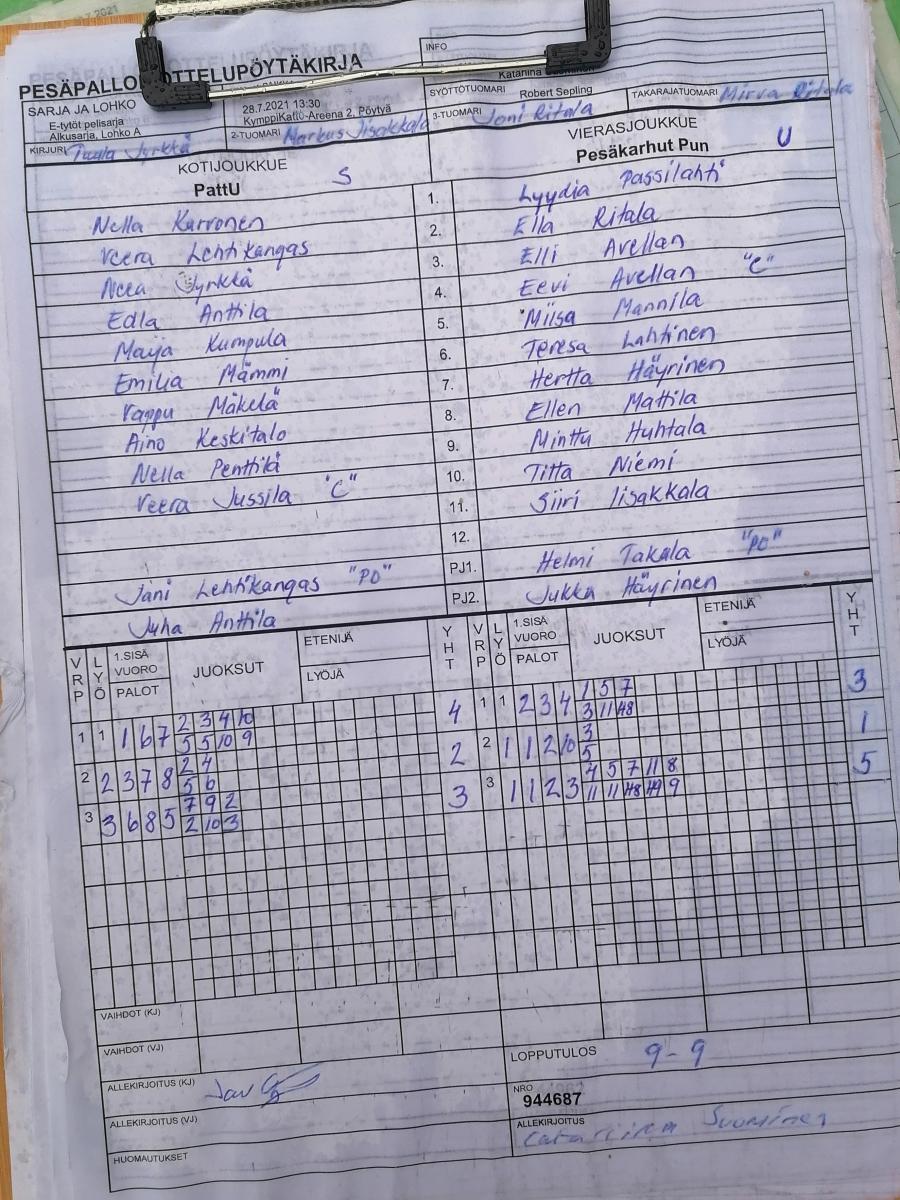 INFO
PESÄPALLO OTTELUPÖYTÄKIRJA
Katariina
SARJA JA LOHKO
E-tytöt pelisarja
Alkusarja, Lohko A
28.7.2021 13:30
KymppiKatto-Areena 2, Pöytyä
SYÖTTÖTUOMARI Robert Sepling
TAKARAJATUOMARI Mirva Ritala
KIRJURI Tuula Jyrkkä
2-TUOMARI Markus Iisakkala
3-TUOMARI Joni Ritala
KOTIJOUKKUE
PattU S
VIERASJOUKKUE
Pesäkarhut Pun U
Nella Karvonen 1. Lyydia Passilahti
Veera Lehtikangas 2. Ella Ritala
Neea Jyrkkä 3. Elli Avellan
Edla Anttila 4. Eevi Avellan "C"
Maija Kumpula 5. Miisa Mannila
Emilia Mämmi 6. Teresa Lahtinen
Vappu Mäkelä 7. Hertta Häyrinen
Aino Keskitalo 8. Ellen Mattila
Nella Penttilä 9. Minttu Huhtala
Veera Jussila "C" 10. Titta Niemi
11. Siiri Iisakkala
12.
Jani Lehtikangas "PD" PJ1. Helmi Takala "PD"
Juha Anttila PJ2. Jukka Häyrinen
VRP LYÖ 1.SISÄ VUORO PALOT JUOKSUT ETENIJÄ LYÖJÄ YHT VRP LYÖ 1.SISÄ VUORO PALOT JUOKSUT ETENIJÄ LYÖJÄ YHT
1 1 1 6 7 2 3 4 10 4 1 1 2 3 4 1 5 7 3
5 5 10 9 3 11 48
2 2 3 7 8 2 4 2 2 1 1 2 10 3 1
5 6 5
3 3 6 8 5 7 9 2 3 3 1 1 2 3 4 5 7 11 8 5
2 10 3 11 11 48 49 9
VAIHDOT (KJ)
VAIHDOT (VJ)
LOPPUTULOS 9-9
ALLEKIRJOITUS (KJ)
NRO
944687
ALLEKIRJOITUS (VJ)
ALLEKIRJOITUS
Katariina Suominen
HUOMAUTUKSET